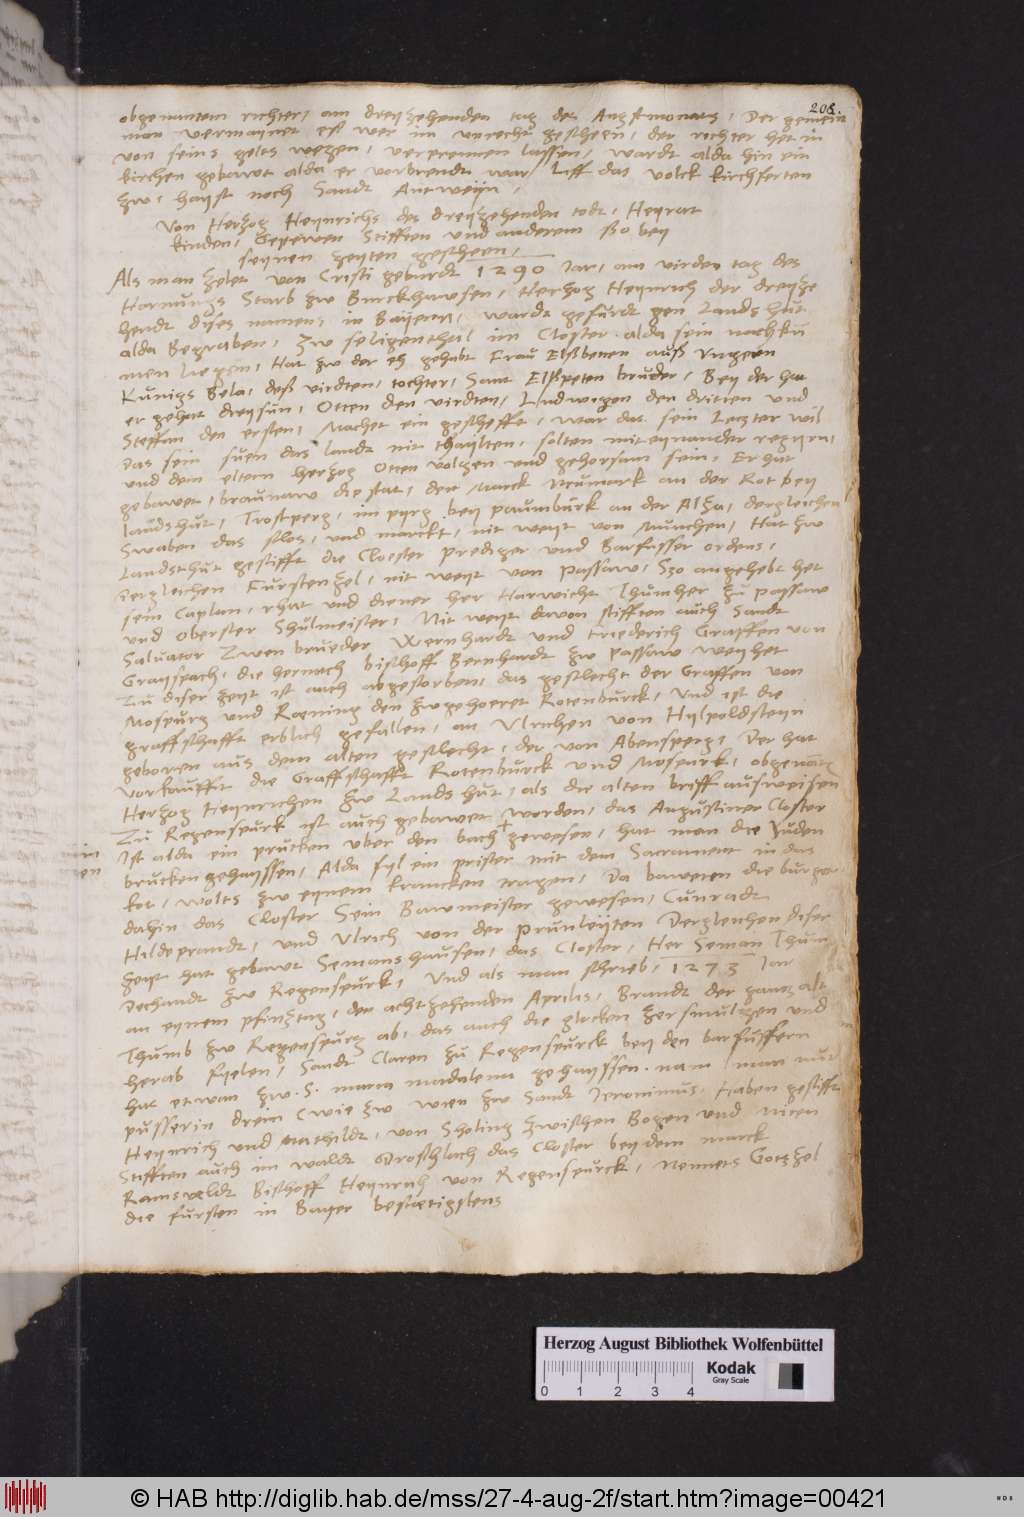 208.
obgenantem richter, am dreyzehenden tag des Augstmonats, Der gemein
man vermaynet eß wer im unrecht gescheen, der richter het in
von seins gelts wegen, verprennen lassen, wardt alda hin ein
kirchen gebawt alda er vorbrendt war, Liff das volck kirchferten
zw, hayst noch Sandt Antweyn,
Von Herzog Heynrichs des dreyzehenden todt, Heyrat
kinden, Gepewen Stifften und anderem sso bey
seynen zeyten gescheen,
Als man zelet von Cristi geburdt 1290 Jar, am virden tag des
Hornungs Starb zw Burckhawsen, Herzog Heynrich der dreyze
hendt dises namens in Bayern, wardt gefurdt gen Landshut
alda Begraben, zw seligenthal im Closter, alda sein nachku
men liegen, Hat zw der eh gehabt Frau Elßbeten auß Ungern
Kunigs Bela, deß virdten, tochter, Sant Elßpeten bruder, Bey der hat
er gehat drey sun, Otten den virdten, Ludwigen den dritten und
Steffan den ersten, Machet ein gescheft, war das sein Letzter wil
das sein suen das landt nit thaylten, solten miteynander regyrn,
und dem eltern herzog Otten volgen und gehorsam sein, Er hat
gebawet, braunaw die stat, den Marck Neumark an der Rot bey
landshut, Trostperg, im pyrg bey paumburk an der Alza, dergleichen
Swaben das slos, und marckt, nit weyt von Munchen, Hat zw
Landshut gestifft die Cloester prediger und Barfusser ordens,
dergleichen Furstenzel, nit weyt von Passaw, Szo angehebt het
sein Caplan, rhat und diener her Harwicht Thumher zu passaw
und oberster Shulmeister, Nit weyt davon stifften auch Sandt
Saluator Zwen brueder Wernhardt und Friederich Graffen von
Grayspach, die hernach bischoff Bernhardt zw Passaw weyhet
Zu diser zeyt ist auch abgestorben, das geslecht der Graffen von
Mospurg und Roening den zwgehoeret Rotenburck, Und ist die
graffschafft erblich gefallen, an Ulrichen von Hylpoldsteyn
geboren aus dem alten geslecht, der von Abensperg, Der hat
vorkaufft die Graffschafft Rotenburck und Mospurk, obgenantz
Herzog Heynrichen zw Landshut, als die alten briff ausweisen
Zu Regenspurk ist auch gebawet worden, das Augustiner Closter
Ist alda ein prucken uber den bach gewesen, hat man die Juden
brucken gehayssen, Alda fyl ein prister mit dem Sacrament in das
kot, wolts zw eynem krancken tragen, Da baweten die burger
dahin das Closter Sein Bawmeister gewesen, Cunradt
Hildeprandt, und Ulrich von der prunleyten Dergleichen diser
zeyt hat gebawt Semanshausen, das Closter, Her Seman Thum
dechandt zw Regenspurk, Und als man schrieb, 1273 Jar
an eynem pfinztag, den achtzehenden Aprilis, Brandt der gantz alt
Thumb zw Regenspurg ab, das auch die glocken zersmultzen und
herab fyelen, Sandt Claren zu Regenspurck bey den barfussern
hat etwan zw .S. maria madalena gehayssen, nam man nur
pusserin drein (wie zw wien zw Sandt Jeronimus, Haben gestifft
Heynrich und Mathildt, von Sholing zwischen Bogen und Miten
Stifften auch im waldt Groshlach das Closter bey dem marck
Ramsveldt Bischoff Heynrich von Regenspurck, Nennets Gotszel
die fursten in Bayer bestaetigstens
Herzog August Bibliothek Wolfenbüttel
0 1 2 3 4
Kodak
Gray Scale
© HAB http://diglib.hab.de/mss/27-4-aug-2f/start.htm?image=00421